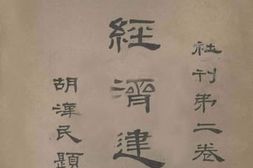 社刊第二卷
經濟建
胡漢民題